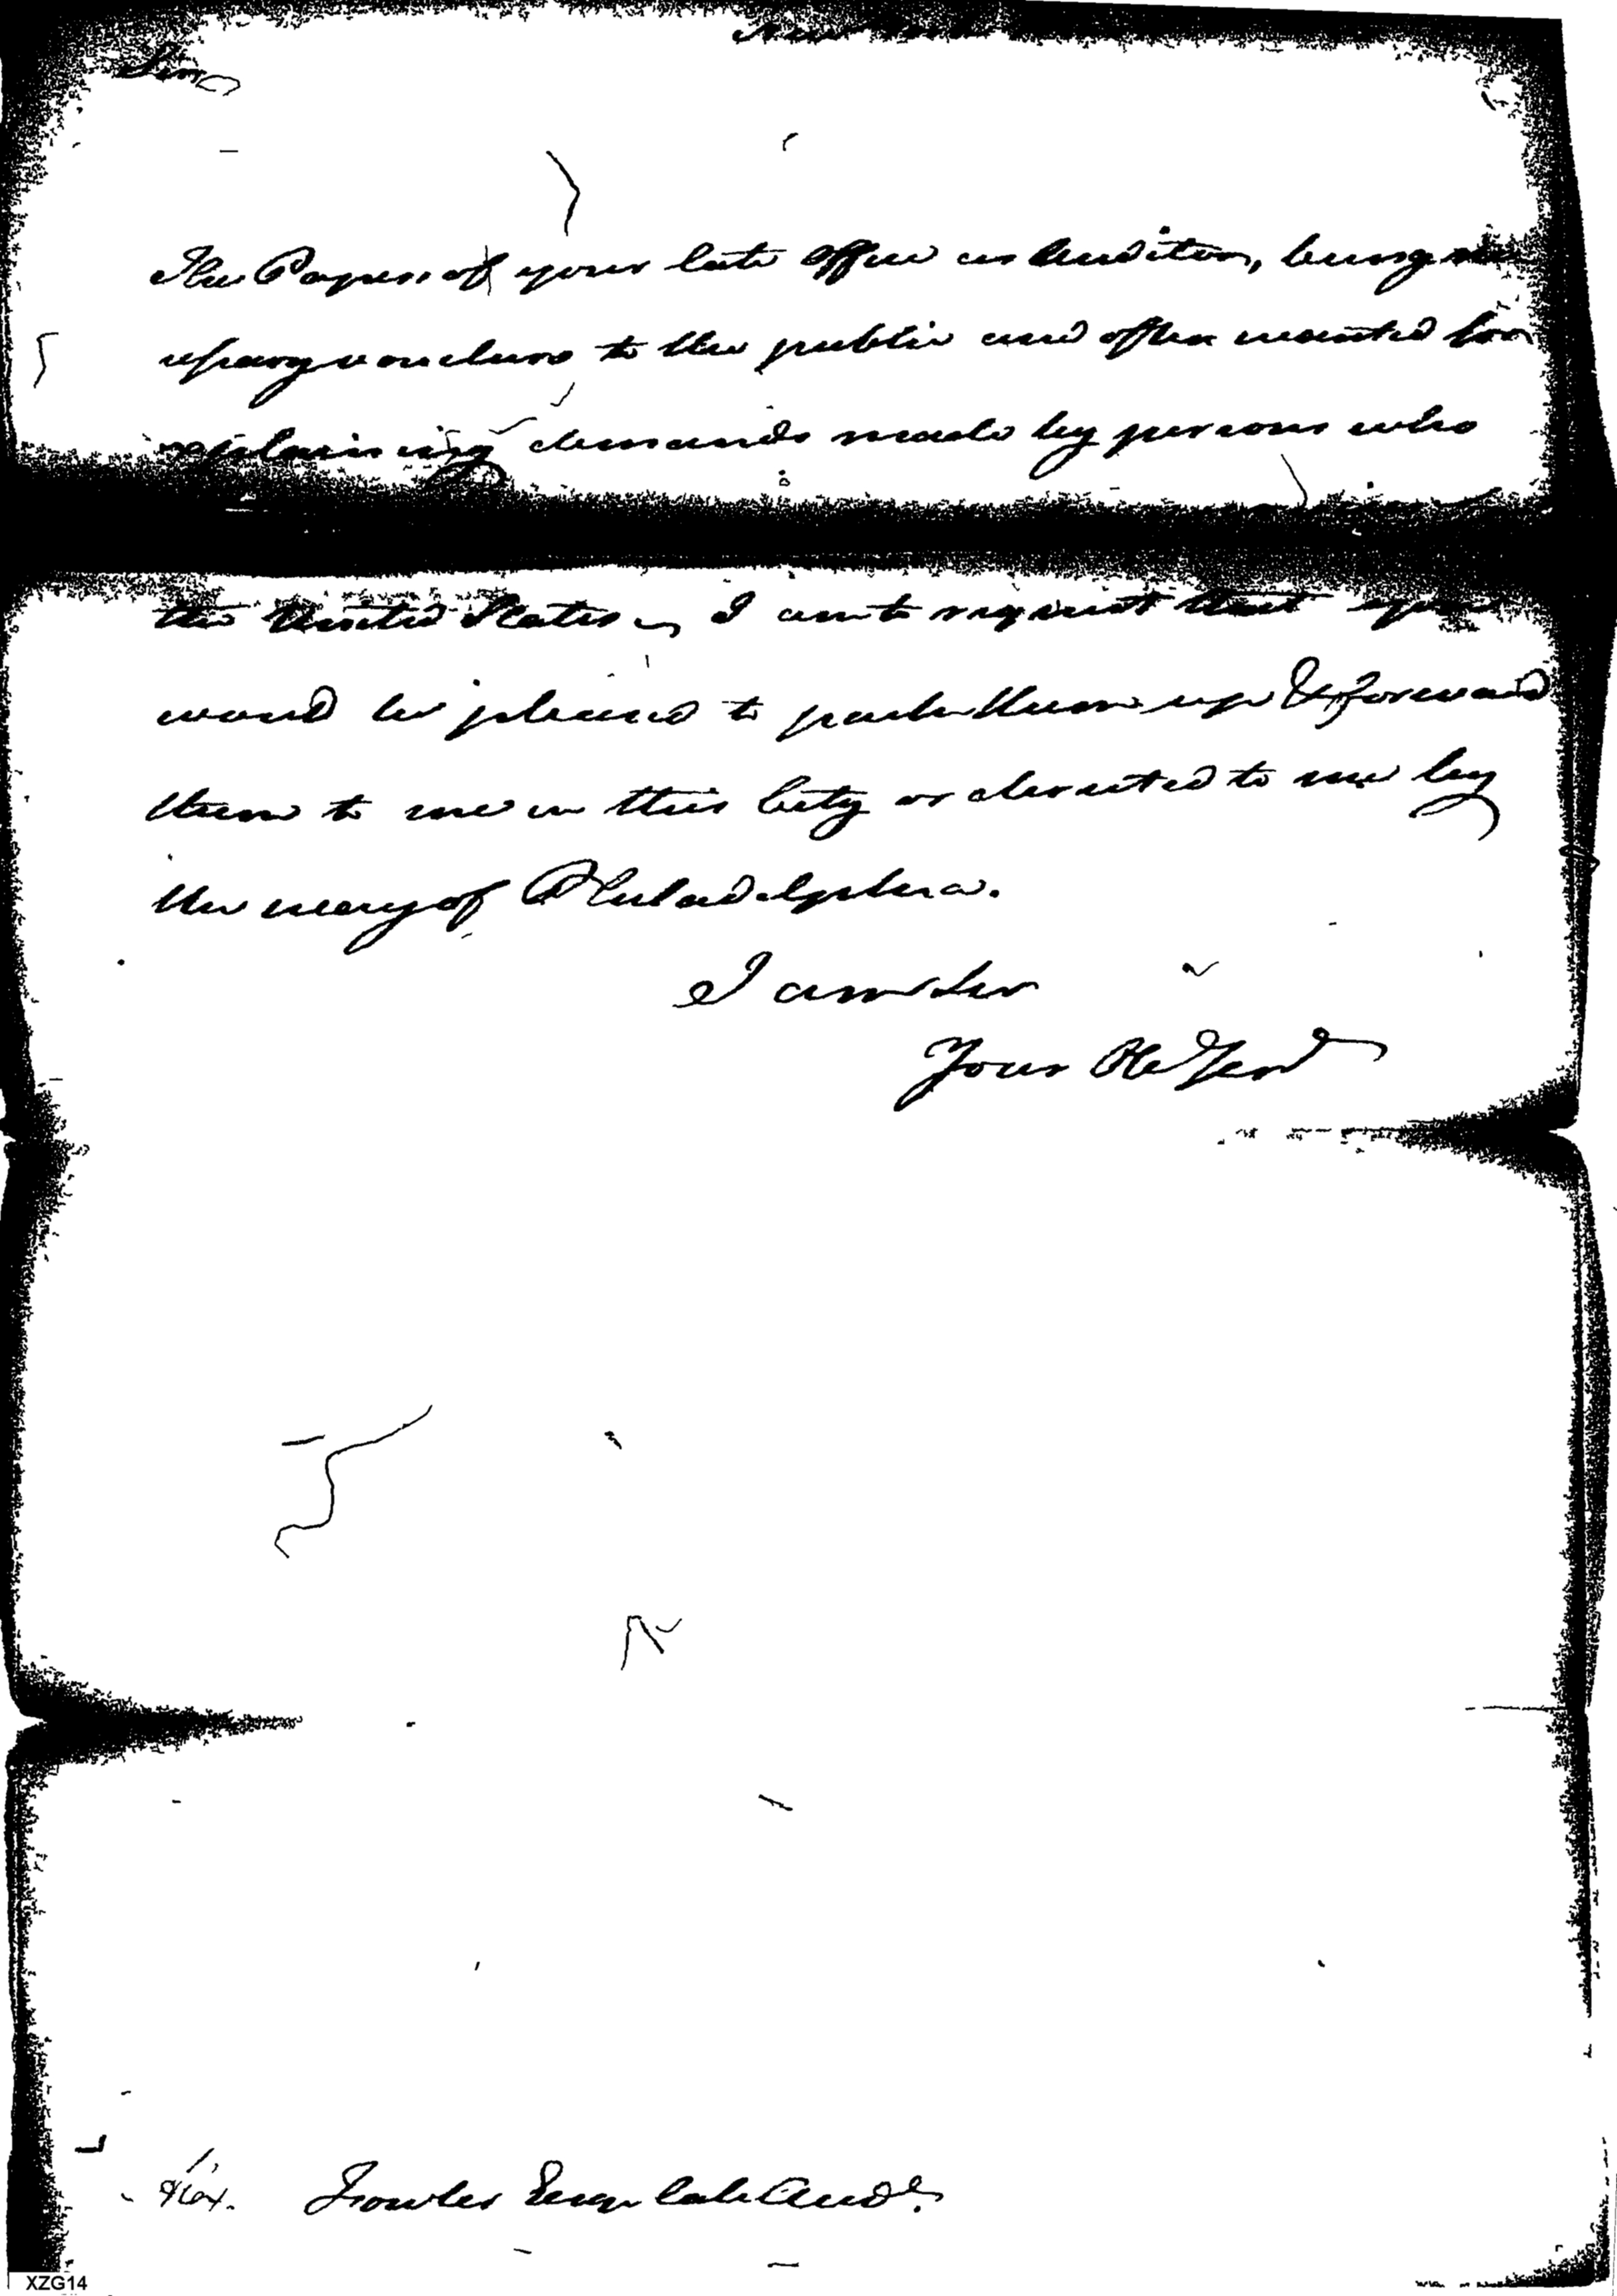 New York
Sir
The Papers of your late Office as Auditor, being ne
cessary vouchers to the public and often wanted for
explaining demands made by persons who
the United States I am to request that you
would be pleased to pack them up & forward
them to me in this City or directed to me by
the way of Philadelphia.
I am Sir
Your Ob Serv
Alex. Fowler Esqr late Audr.
XZG14